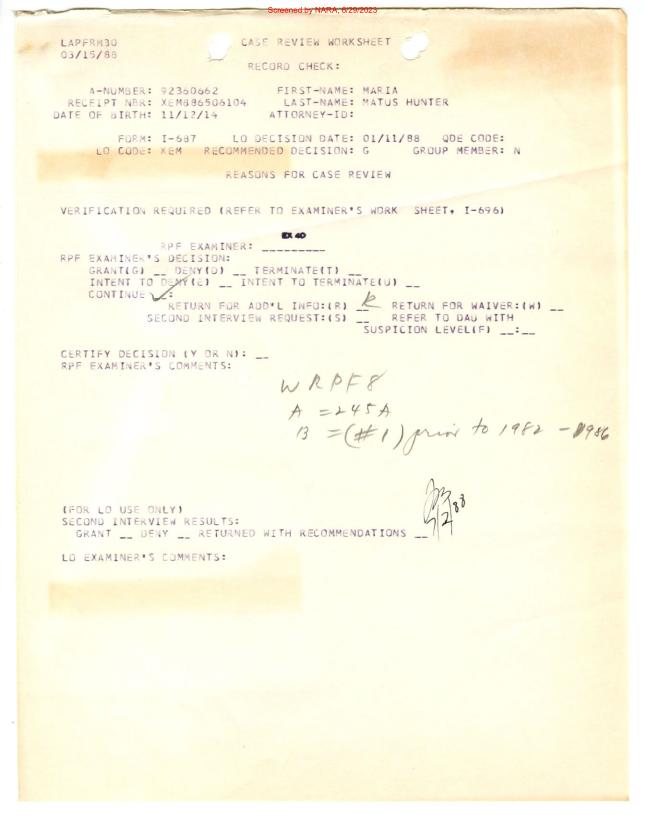 Screened by NARA, 6/29/2023
LAPFRM30 CASE REVIEW WORKSHEET
03/15/88
RECORD CHECK:
A-NUMBER: 92360662 FIRST-NAME: MARIA
RECEIPT NBR: XEM886506104 LAST-NAME: MATUS HUNTER
DATE OF BIRTH: 11/12/14 ATTORNEY-ID:
FORM: I-687 LO DECISION DATE: 01/11/88 QDE CODE:
LO CODE: XEM RECOMMENDED DECISION: G GROUP MEMBER: N
REASONS FOR CASE REVIEW
VERIFICATION REQUIRED (REFER TO EXAMINER'S WORK SHEET, I-696)
EX 40
RPF EXAMINER: _________
RPF EXAMINER'S DECISION:
GRANT(G) __ DENY(D) __ TERMINATE(T) __
INTENT TO DENY(E) __ INTENT TO TERMINATE(U) __
CONTINUE __:
RETURN FOR ADD'L INFO:(R) __ R RETURN FOR WAIVER:(W) __
SECOND INTERVIEW REQUEST:(S) __ REFER TO DAU WITH
SUSPICION LEVEL(F) __:__
CERTIFY DECISION (Y OR N): __
RPF EXAMINER'S COMMENTS:
WRPF8
A = 245A
B = (#1) prior to 1982 - 1986
(FOR LO USE ONLY)
SECOND INTERVIEW RESULTS:
GRANT __ DENY __ RETURNED WITH RECOMMENDATIONS __
LO EXAMINER'S COMMENTS: